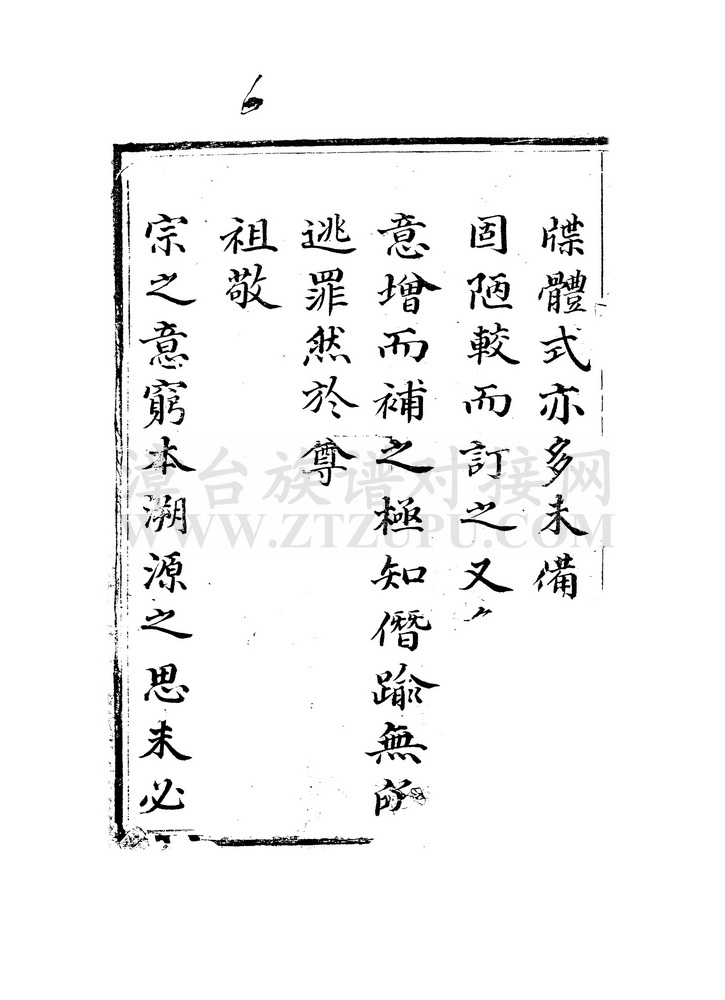 6
牒體式亦多未備
固陋較而訂之又
意增而補之極知僭踰無所
逃罪然於尊
祖敬
宗之意窮本溯源之思未必
漳台族谱对接网
WWW.ZTZUPU.COM